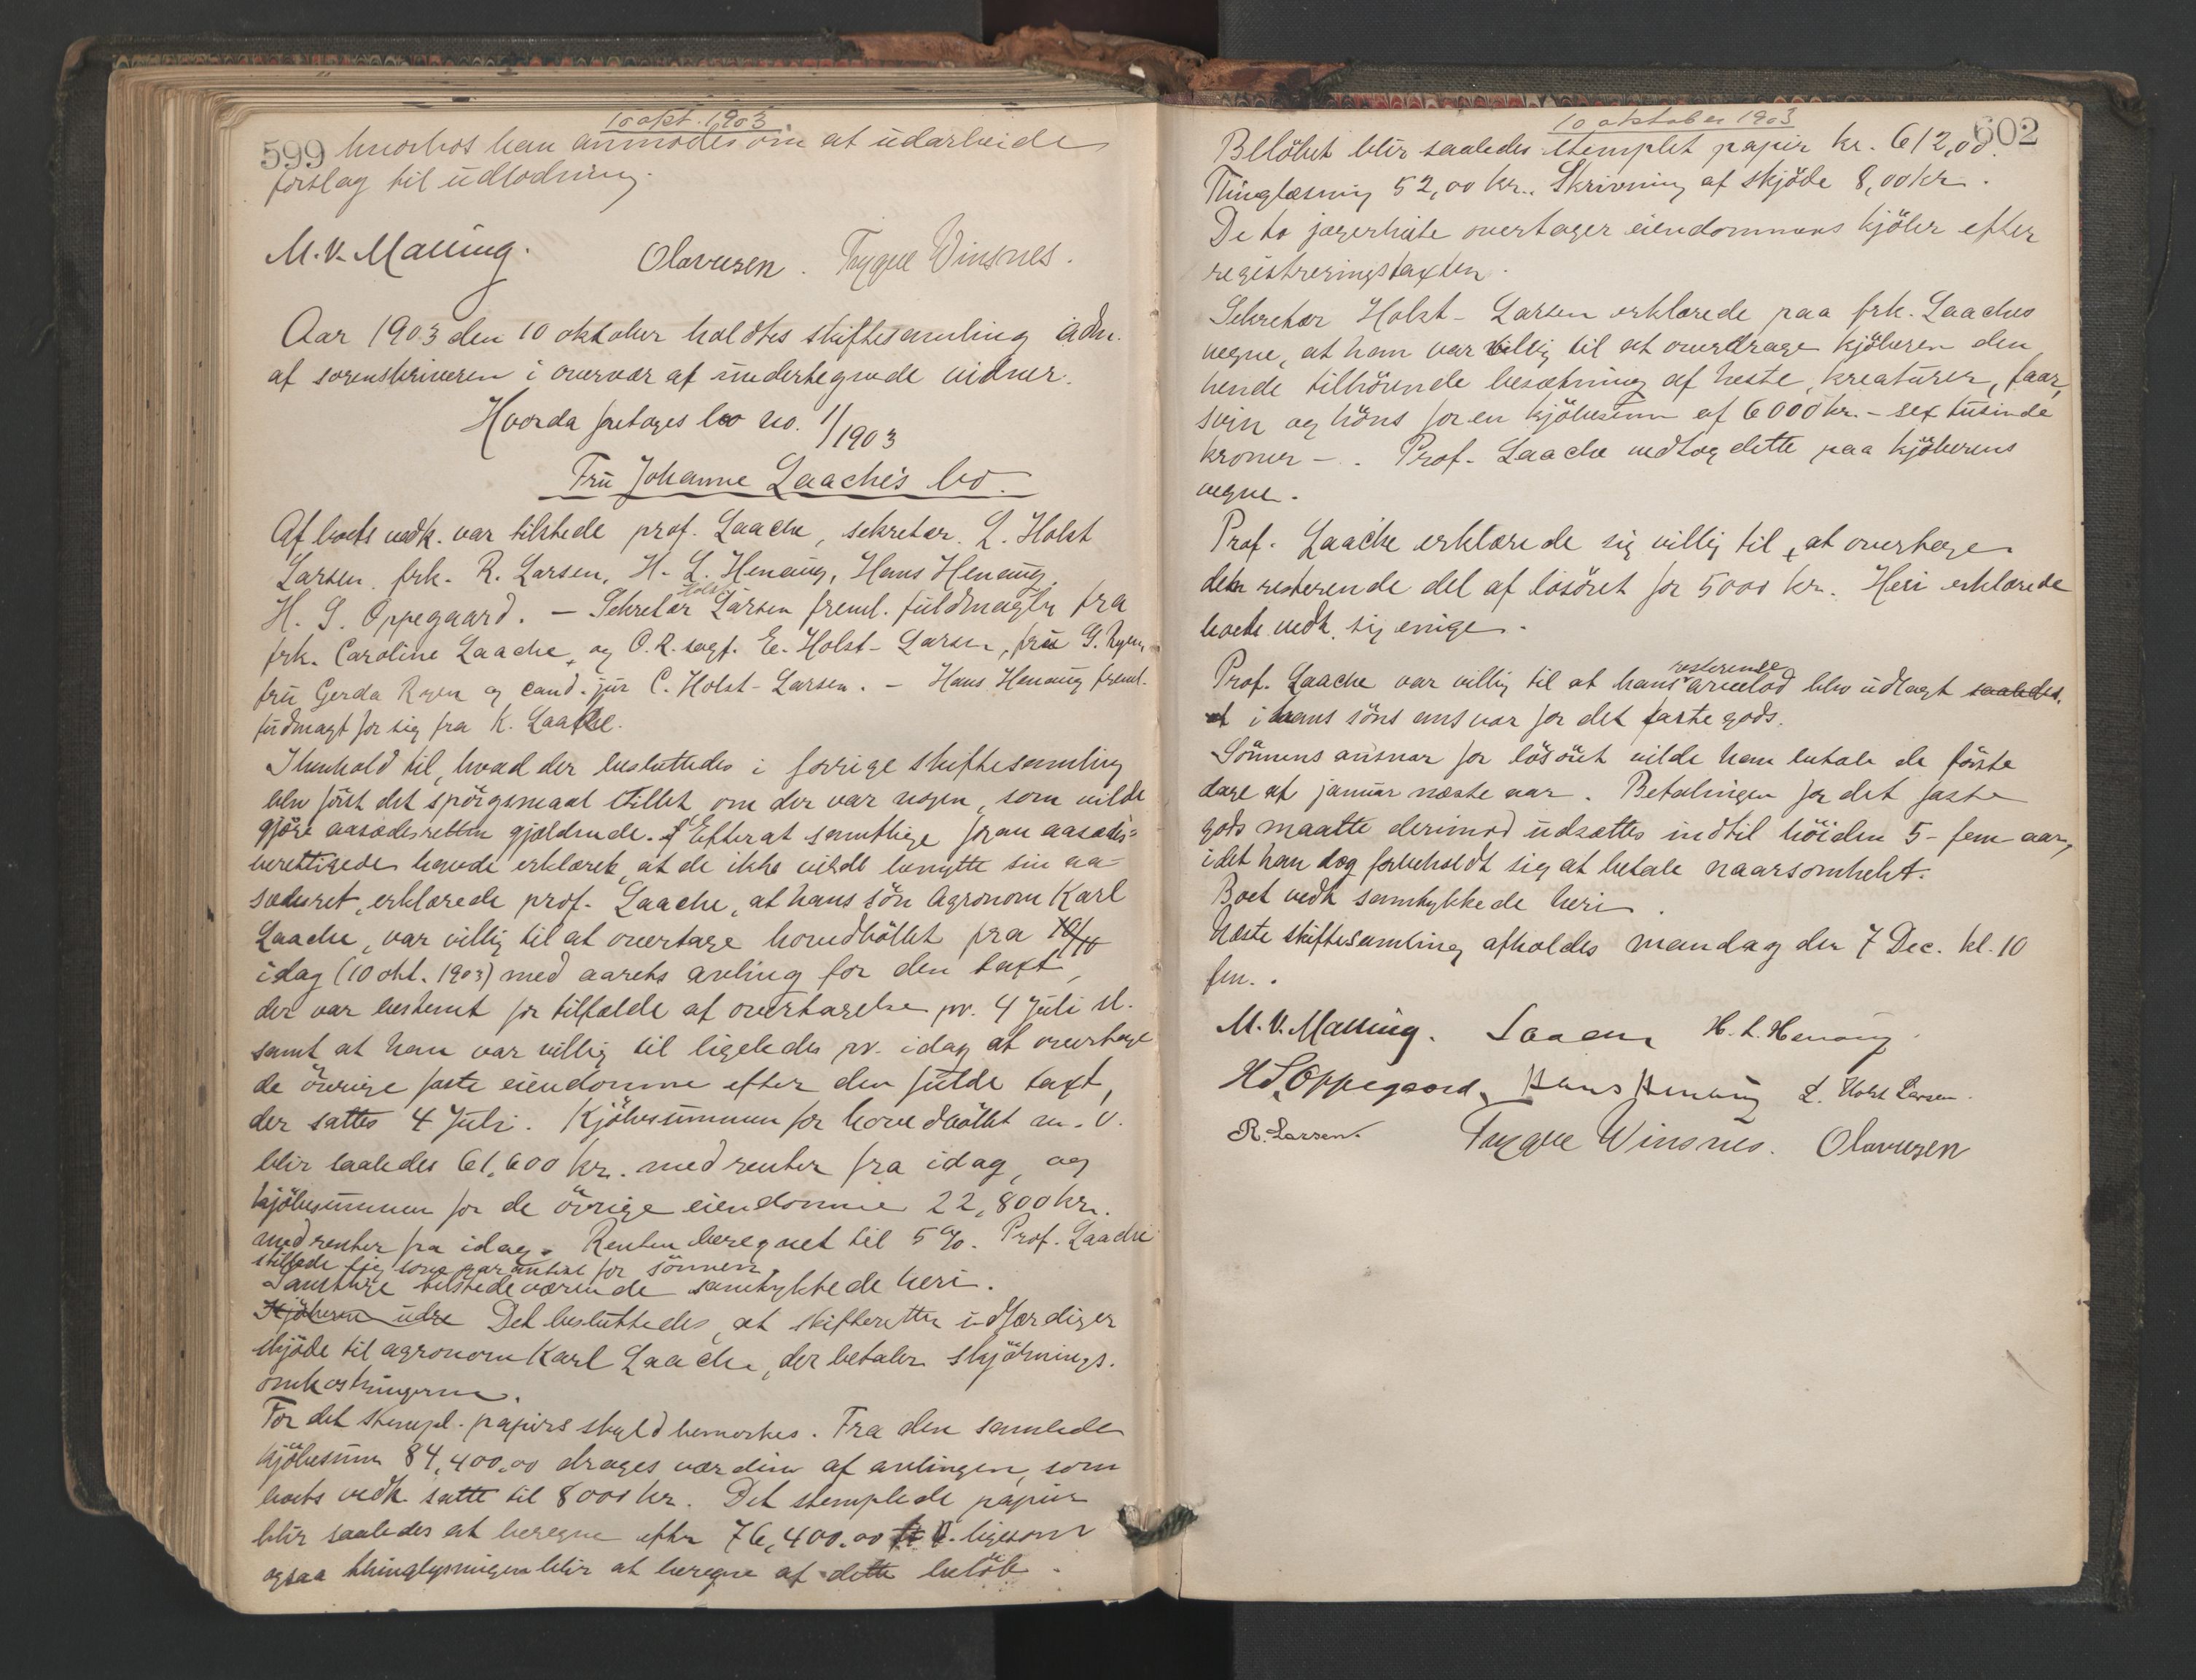 10 okt. 1903.
599 hvorhos han anmodes om at udarbeide
forslag til udlodning.
M. V. Malling. Olavesen. Trygve Winsnes.
Aar 1903 den 10 oktober holdtes skiftesamling adm.
af sorenskriveren i overvær af undertegnede vidner.
Hvorda foretages bo no. 1/1903
Fru Johanne Laache's bo.
Af boets vedk. var tilstede prof. Laache, sekretær. L. Holst
Larsen, frk. R. Larsen, H. L. Henaug, Hans Henaug,
H. S. Oppegaard. – Sekretær Holst Larsen freml. fuldmagter fra
frk. Caroline Laache, og O.R. sagf. E. Holst-Larsen, fru G. Ryen,
fru Gerda Ryen og cand. jur C. Holst-Larsen. – Hans Henaug freml.
fuldmagt for sig fra K. Laache.
I henhold til, hvad der besluttedes i forrige skiftesamling
blev først det spørgsmaal stillet, om der var nogen, som vilde
gjøre aasædesretten gjældende. Efterat samtlige foran aasædes-
berettigede havde erklæret, at de ikke vilde benytte sin aa-
sædesret, erklærede prof. Laache, at hans søn Agronom Karl
Laache, var villig til at overtage hovedbøllet fra 10/10
idag (10 okt. 1903) med aarets avling for den taxt,
der var bestemt for tilfælde af overtagelse pr. 4 Juli d.
samt at han var villig til ligeledes pr. idag at overtage
de övrige faste eiendomme efter den fulde taxt,
der sattes 4 Juli. Kjöbesummen for hovedbøllet m. v.
blir saaledes 61,600 kr. med renter fra idag, og
kjöbesummen for de övrige eiendomme 22,800 kr.
med renter fra idag. Renten beregnet til 5 %. Prof. Laache
stillede sig som garantist for sönnen.
Samtlige tilstedeværende samtykkede heri.
Kjøberen udre Det besluttedes, at skifteretten udfærdiger
skjöde til agronom Karl Laache, der betaler skjödnings-
omkostningerne.
For det stempl. papirs skyld bemerkes. Fra den samlede
kjöbesum 84,400.00 drages værdien af avlingen, som
boets vedk. satte til 8000 kr. Det stemplede papir
blir saaledes at beregne efter 76,400.00 ligesom
ogsaa thinglysningen blir at beregne af dette belöb.
10 oktober 1903
602
Belöbet blir saaledes stemplet papir kr. 612,00.
Thinglæsning 52,00 kr. Skrivning af skjöde 8,00 kr.
De to jægerhute overtager eiendommens kjöber efter
registreringstaxten.
Sekretær Holst-Larsen erklærede paa frk. Laaches
vegne, at han var villig til at overdrage kjöberen den
hende tilhörende besætning af heste, kreaturer, faar,
svin og höns for en kjöbesum af 6000 kr. – sex tusinde
kroner –. Prof. Laache vedtog dette paa kjöberens
vegne.
Prof. Laache erklærede sig villig til, at overtage
den resterende del af lösöret for 5000 kr. Heri erklærede
boets vedk. sig enige.
Prof. Laache var villig til at hans resterende arvelod blev udlagt saaledes.
at i hans söns ansvar for det faste gods.
Sönnens ansvar for lösöret vilde han betale de förste
dage af januar næste aar. Betalingen for det faste
gods maatte derimod udsættes indtil höiden 5 – fem aar,
idet han dog forbeholdt sig at betale naarsomhelst.
Boet vedk samtykkede heri.
Næste skiftesamling afholdes mandag den 7 Dec. kl. 10
fm.
M. V. Malling. Laache H. L. Henaug
H S. Oppegaard. Hans Henaug L. Holst Larsen.
R. Larsen. Trygve Winsnes. Olavesen